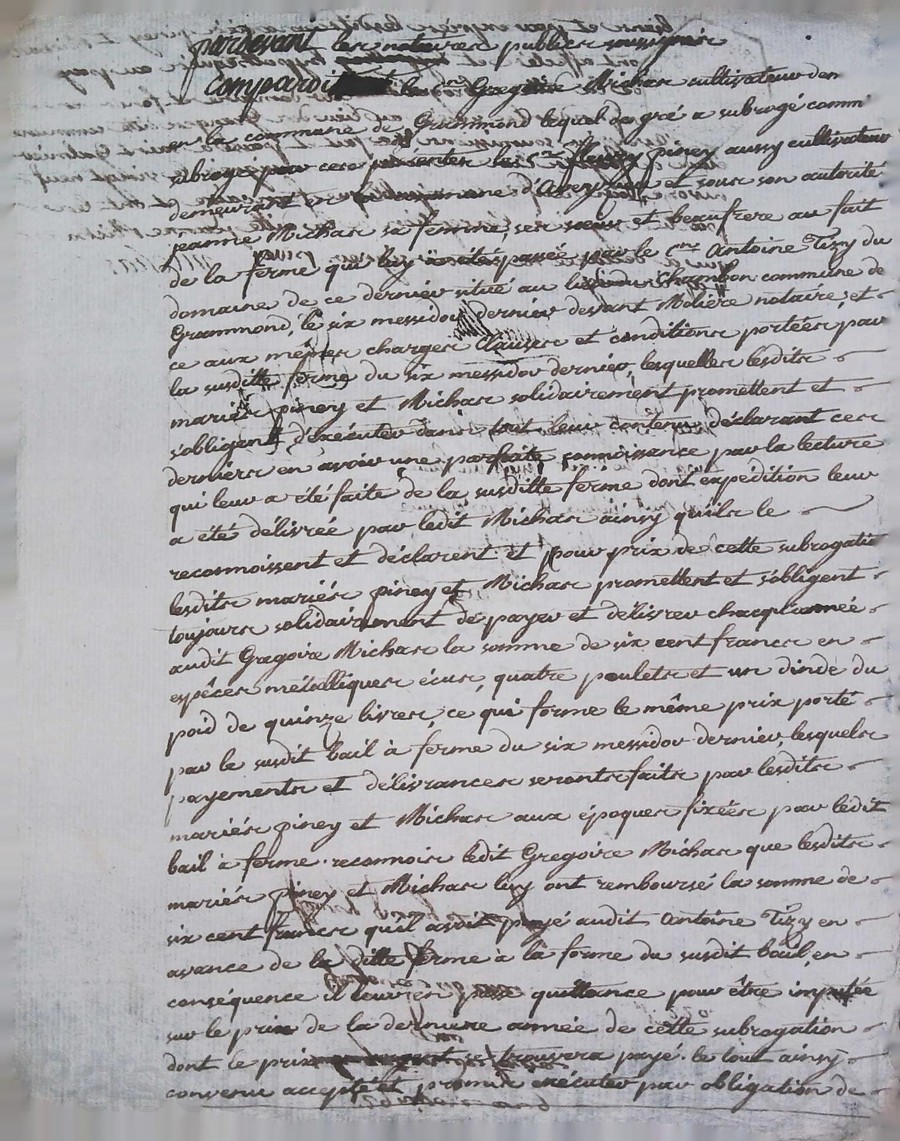 pardevant les notaires publics soussignés
comparoit le c.en Gregoire Michas cultivateur dem.
en la commune de Grammond lequel de gré a subrogé comm'
subrogé par ces presentes le c.en fleury piney aussy cultivateur
demeurant en commune d'Aveyzieux et sous son autorité
jeanne Michas sa femme, ses sœur et beaufrere au fait
de la ferme qui luy a été passée par le c.en Antoine Tizy du
domaine de ce dernier situé au lieu du Chambon commune de
Grammond, le six messidor dernier devant Molière notaire, et
ce aux mêmes charges clauses et conditions portées par
la susditte ferme du six messidor dernier, lesquelles lesdits
mariés piney et Michas solidairement promettent et
s'obligent d'exécuter dans tout leur contenu, déclarant ces
derniers en avoir une parfaite connoissance par la lecture
qui leur a été faite de la susditte ferme dont expédition leur
a été délivrée par ledit Michas ainsy qu'ils le
reconnoissent et déclarent. et pour prix de cette subrogatio
lesdits mariés piney et Michas promettent et s'obligent
toujours solidairement de payer et délivrer chacqu'année
audit Gregoire Michas la somme de six cent francs en
espèces métalliques écus, quatre poulets et un dinde du
poid de quinze livres, ce qui forme le même prix porté
par le susdit bail à ferme du six messidor dernier, lesquels
payements et délivrances seronts faits par lesdits
mariés piney et Michas aux époques fixées par ledit
bail à ferme. reconnois ledit Gregoire Michas que lesdits
mariés piney et Michas luy ont remboursé la somme de
six cent francs qu'il avoit payé audit Antoine Tizy en
avance de la ditte ferme à la forme du susdit bail, en
conséquence il leur en passe quittance pour être imputée
sur le prix de la derniere année de cette subrogation
dont le prix se trouvera payé. le tout ainsy
convenu accepté et promis exécuter par obligation de